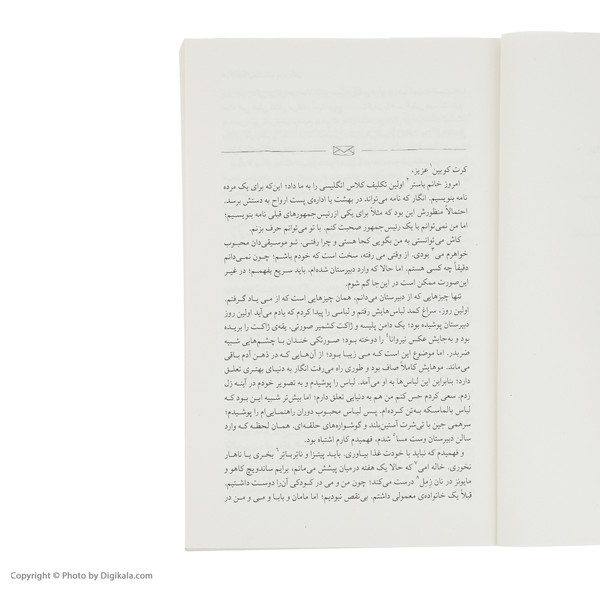 کرت کوبین۱ عزیز،
امروز خانم باستر۲ اولین تکلیف کلاس انگلیسی را به ما داد؛ این‌که برای یک مرده
نامه بنویسیم. انگار که نامه می‌تواند در بهشت یا اداره‌ی پست ارواح به دستش برسد.
احتمالاً منظورش این بود که مثلاً برای یکی ازرئیس‌جمهورهای قبلی نامه بنویسیم؛
اما من نمی‌توانم با یک رئیس‌جمهور صحبت کنم. با تو می‌توانم حرف بزنم.
کاش می‌توانستی به من بگویی کجا هستی و چرا رفتی. تو موسیقی‌دان محبوب
خواهرم می۳ بودی. از وقتی می رفته، سخت است که خودم باشم؛ چون نمی‌دانم
دقیقاً چه کسی هستم. اما حالا که وارد دبیرستان شده‌ام، باید سریع بفهمم؛ در غیر
این‌صورت ممکن است در این‌جا گم شوم.
تنها چیزهایی که از دبیرستان می‌دانم، همان چیزهایی است که از مـی یـاد گـرفتم.
اولین روز، سراغ کمد لباس‌هایش رفتم و لباسی را پیدا کردم که یادم می‌آید اولین روز
دبیرستان پوشیده بود؛ یک دامن پلیسه و ژاکت کشمیر صورتی. یقه‌ی ژاکت را بریده
بود و به‌جایش عکس نیروانا۴ را دوخته بود؛ صورتکی خندان بـا چشـم‌هایی شـبیه
ضربدر. اما موضوع این است کـه مـی زیبـا بـود؛ از آن‌هایی کـه در ذهن آدم بـاقی
می‌ماند. موهایش کاملاً صاف بود و طوری راه می‌رفت انگار به دنیای بهتری تعلق
دارد؛ بنابراین این لباس‌ها به او می‌آمد. لباس را پوشیدم و به تصویر خودم در آینه زل
زدم. سعی کردم حس کنم من هم به دنیایی تعلق دارم؛ اما بیش‌تر شـبیه ایـن بـود کـه
لباس بالماسکه به‌تن کرده‌ام. پـس لبـاس محبـوب دوران راهنمـایی‌ام را پوشـیدم؛
سرهمی جین با تی‌شرت آستین‌بلند و گوشواره‌های حلقه‌ای. همان لحظـه کـه وارد
سالن دبیرستان وست مسا۵ شدم، فهمیدم کارم اشتباه بود.
و فهمیدم که نباید با خودت غذا بیـاوری. بایـد پیتـزا و ناتِربـاتِر۶ بخـری یـا ناهـار
نخوری. خاله اِمی۷ که حالا یک هفته درمیان پیشش می‌مانم، برایم ساندویچ کاهو و
مایونز در نان زمل۸ درست می‌کند؛ چون من و می در کـودکی آن‌را دوسـت داشـتیم.
قبلاً یک خانواده‌ی معمولی داشتم. بی‌نقص نبودیم؛ اما مامان و بابا و مـی و مـن در
Copyright © Photo by Digikala.com